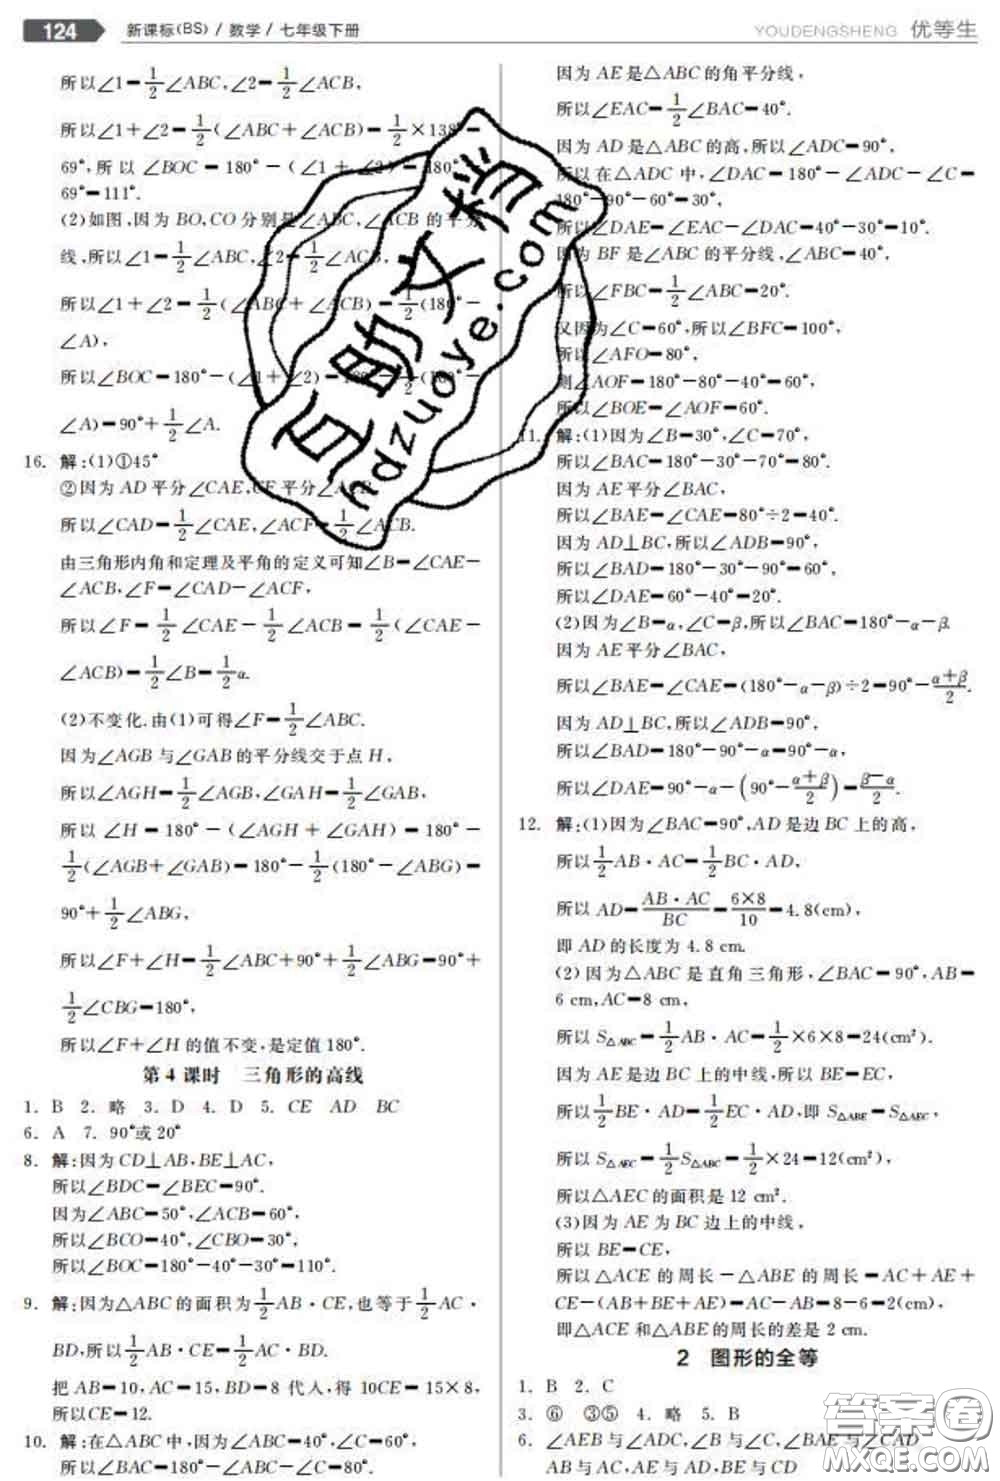 124 新课标(BS) / 数学 / 七年级下册
YOUDENGSHENG 优等生
所以∠1=1/2∠ABC,∠2=1/2∠ACB,
所以∠1+∠2=1/2(∠ABC+∠ACB)=1/2×138°=
69°,所以∠BOC=180°-(∠1+∠2)=180°-
69°=111°.
(2)如图,因为BO,CO分别是∠ABC,∠ACB的平分
线,所以∠1=1/2∠ABC,∠2=1/2∠ACB,
所以∠1+∠2=1/2(∠ABC+∠ACB)=1/2(180°-
∠A),
所以∠BOC=180°-(∠1+∠2)=180°-1/2(180°-
∠A)=90°+1/2∠A.
16. 解:(1)①45°
②因为AD平分∠CAE,CF平分∠ACB,
所以∠CAD=1/2∠CAE,∠ACF=1/2∠ACB.
由三角形内角和定理及平角的定义可知∠B=∠CAE-
∠ACB,∠F=∠CAD-∠ACF,
所以∠F=1/2∠CAE-1/2∠ACB=1/2(∠CAE-
∠ACB)=1/2∠B=1/2α.
(2)不变化.由(1)可得∠F=1/2∠ABC.
因为∠AGB与∠GAB的平分线交于点H,
所以∠AGH=1/2∠AGB,∠GAH=1/2∠GAB,
所以∠H=180°-(∠AGH+∠GAH)=180°-
1/2(∠AGB+∠GAB)=180°-1/2(180°-∠ABG)=
90°+1/2∠ABG,
所以∠F+∠H=1/2∠ABC+90°+1/2∠ABG=90°+
1/2∠CBG=180°,
所以∠F+∠H的值不变,是定值180°.
第4课时 三角形的高线
1. B 2. 略 3. D 4. D 5. CE AD BC
6. A 7. 90°或20°
8. 解:因为CD⊥AB,BE⊥AC,
所以∠BDC=∠BEC=90°.
因为∠ABC=50°,∠ACB=60°,
所以∠BCO=40°,∠CBO=30°,
所以∠BOC=180°-40°-30°=110°.
9. 解:因为△ABC的面积为1/2AB·CE,也等于1/2AC·
BD,所以1/2AB·CE=1/2AC·BD.
把AB=10,AC=15,BD=8代人,得10CE=15×8,
所以CE=12.
10. 解:在△ABC中,因为∠ABC=40°,∠C=60°,
所以∠BAC=180°-∠ABC-∠C=80°.
因为AE是△ABC的角平分线,
所以∠EAC=1/2∠BAC=40°.
因为AD是△ABC的高,所以∠ADC=90°,
所以在△ADC中,∠DAC=180°-∠ADC-∠C=
180°-90°-60°=30°,
所以∠DAE=∠EAC-∠DAC=40°-30°=10°.
因为BF是∠ABC的平分线,∠ABC=40°.
所以∠FBC=1/2∠ABC=20°.
又因为∠C=60°,所以∠BFC=100°,
所以∠AFO=80°,
则∠AOF=180°-80°-40°=60°,
所以∠BOE=∠AOF=60°.
11. 解:(1)因为∠B=30°,∠C=70°,
所以∠BAC=180°-30°-70°=80°.
因为AE平分∠BAC,
所以∠BAE=∠CAE=80°÷2=40°.
因为AD⊥BC,所以∠ADB=90°,
所以∠BAD=180°-30°-90°=60°,
所以∠DAE=60°-40°=20°.
(2)因为∠B=α,∠C=β,所以∠BAC=180°-α-β.
因为AE平分∠BAC,
所以∠BAE=∠CAE=(180°-α-β)÷2=90°-(α+β)/2.
因为AD⊥BC,所以∠ADB=90°,
所以∠BAD=180°-90°-α=90°-α,
所以∠DAE=90°-α-(90°-(α+β)/2)=(β-α)/2.
12. 解:(1)因为∠BAC=90°,AD是边BC上的高,
所以1/2AB·AC=1/2BC·AD,
所以AD=AB·AC/BC=6×8/10=4.8(cm),
即AD的长度为4.8 cm.
(2)因为△ABC是直角三角形,∠BAC=90°,AB=
6 cm,AC=8 cm,
所以S△ABC=1/2AB·AC=1/2×6×8=24(cm²).
因为AE是边BC上的中线,所以BE=EC,
所以1/2BE·AD=1/2EC·AD,即S△ABE=S△AEC,
所以S△AEC=1/2S△ABC=1/2×24=12(cm²),
所以△AEC的面积是12 cm².
(3)因为AE为BC边上的中线,
所以BE=CE,
所以△ACE的周长-△ABE的周长=AC+AE+
CE-(AB+BE+AE)=AC-AB=8-6=2(cm),
即△ACE和△ABE的周长的差是2 cm.
2 图形的全等
1. B 2. C
3. ⑥ ③⑤ 4. 略 5. B
6. ∠AEB与∠ADC,∠B与∠C,∠BAE与∠CAD
AB与AC,AE与AD,BE与CD
hdzuoye.com
答案圈
MXQE.COM